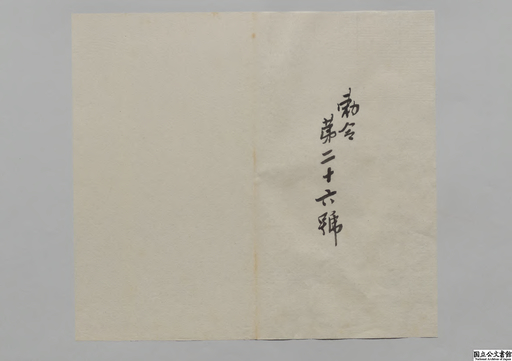 勅令
第二十六號
国立公文書館
National Archives of Japan